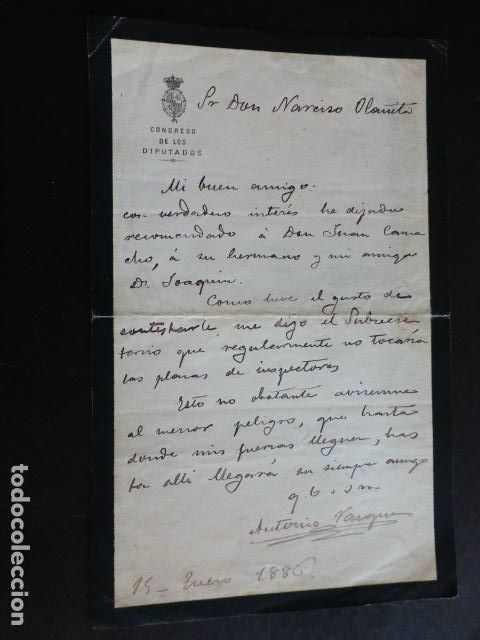 Sr Don Narciso Olañeta
CONGRESO
DE LOS
DIPUTADOS
Mi buen amigo.
con verdadero interés he dejado
recomendado á Don Juan Cama
cho, á su hermano y mi amigo
D. Joaquin.
Como tuve el gusto de
contestarle, me dijo el Subsecre
tario que regularmente no tocaría
las plazas de inspectores
Esto no obstante aviseme
al menor peligro, que hasta
donde mis fuerzas lleguen, has
ta allí llegará su siempre amigo
q b s m
Antonio
15 - Enero 1886.
todocoleccion